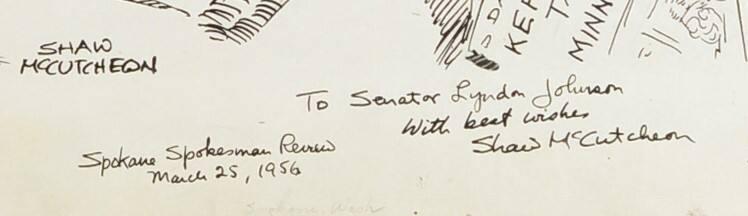 KEF
TA
MINN
SHAW
McCUTCHEON
To Senator Lyndon Johnson
With best wishes
Shaw McCutcheon
Spokane Spokesman Review
March 25, 1956
Spokane, Wash